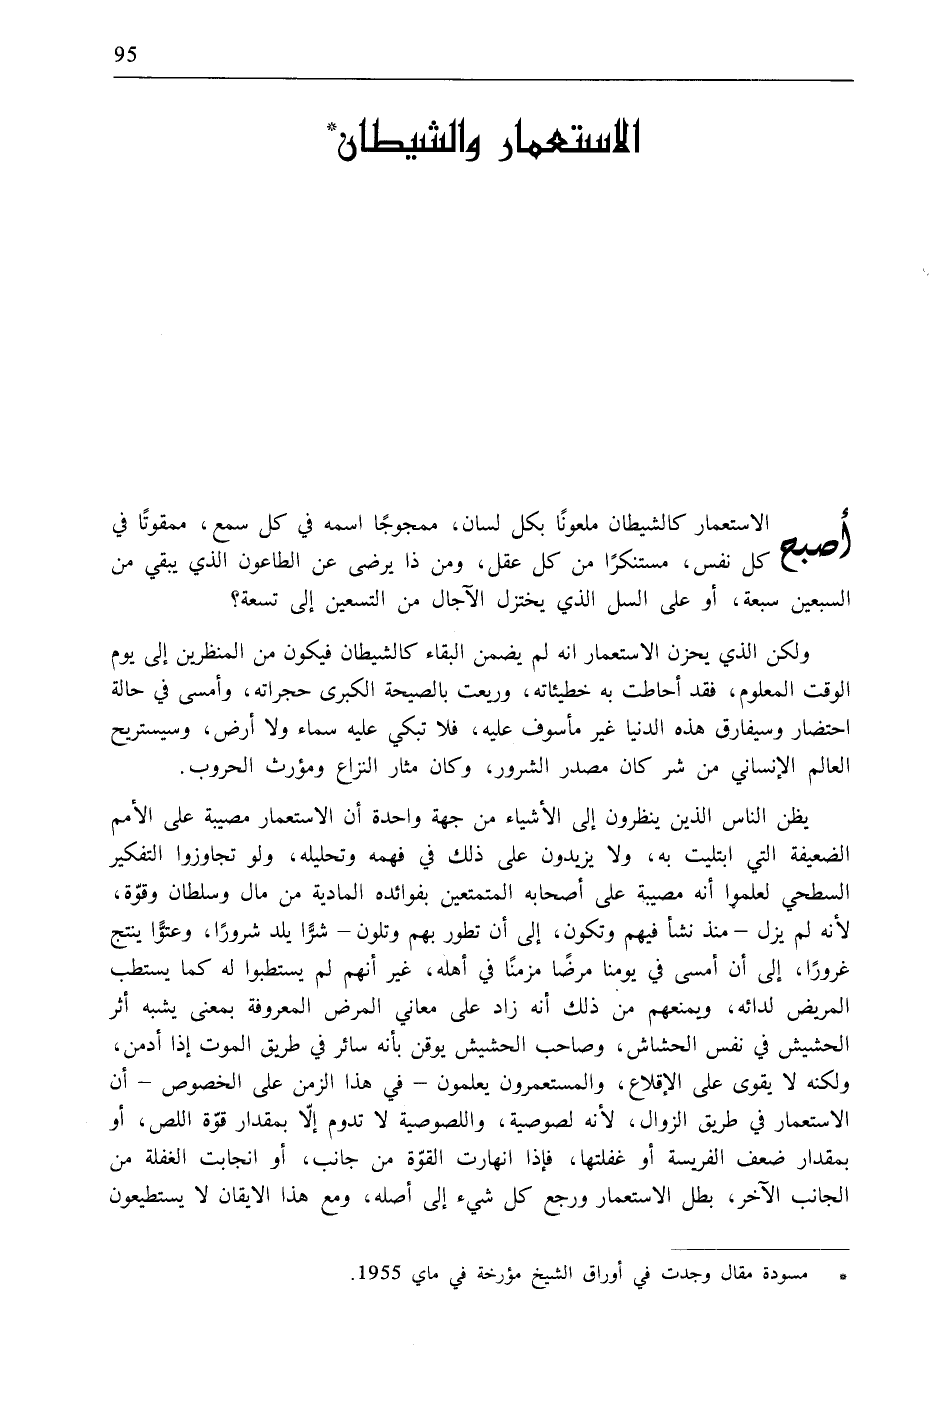 95
الاستعمار والشيطان*
أصبح الاستعمار كالشيطان ملعونًا بكل لسان، ممجوجًا اسمه في كل سمع، ممقوتًا في
كل نفس، مستنكرًا من كل عقل، ومن ذا يرضى عن الطاعون الذي يبقي من
السبعين سبعة، أو على السل الذي يختزل الآجال من التسعين إلى تسعة؟
ولكن الذي يحزن الاستعمار انه لم يضمن البقاء كالشيطان فيكون من المنظرين إلى يوم
الوقت المعلوم، فقد أحاطت به خطيئاته، وريعت بالصيحة الكبرى حجراته، وأمسى في حالة
احتضار وسيفارق هذه الدنيا غير مأسوف عليه، فلا تبكي عليه سماء ولا أرض، وسيستريح
العالم الإنساني من شر كان مصدر الشرور، وكان مثار النزاع ومؤرث الحروب.
يظن الناس الذين ينظرون إلى الأشياء من جهة واحدة أن الاستعمار مصيبة على الأمم
الضعيفة التي ابتليت به، ولا يزيدون على ذلك في فهمه وتحليله، ولو تجاوزوا التفكير
السطحي لعلموا أنه مصيبة على أصحابه المتمتعين بفوائده المادية من مال وسلطان وقوّة،
لأنه لم يزل – منذ نشأ فيهم وتكون، إلى أن تطور بهم وتلون – شرًّا يلد شرورًا، وعتوًّا ينتج
غرورًا، إلى أن أمسى في يومنا مرضًا مزمنًا في أهله، غير أنهم لم يستطبوا له كما يستطب
المريض لدائه، ويمنعهم من ذلك أنه زاد على معاني المرض المعروفة بمعنى يشبه أثر
الحشيش في نفس الحشاش، وصاحب الحشيش يوقن بأنه سائر في طريق الموت إذا أدمن،
ولكنه لا يقوى على الإقلاع، والمستعمرون يعلمون – في هذا الزمن على الخصوص – أن
الاستعمار في طريق الزوال، لأنه لصوصية، واللصوصية لا تدوم إلّا بمقدار قوّة اللص، أو
بمقدار ضعف الفريسة أو غفلتها، فإذا انهارت القوّة من جانب، أو انجابت الغفلة من
الجانب الآخر، بطل الاستعمار ورجع كل شيء إلى أصله، ومع هذا الايقان لا يستطيعون
* مسودة مقال وجدت في أوراق الشيخ مؤرخة في ماي 1955.